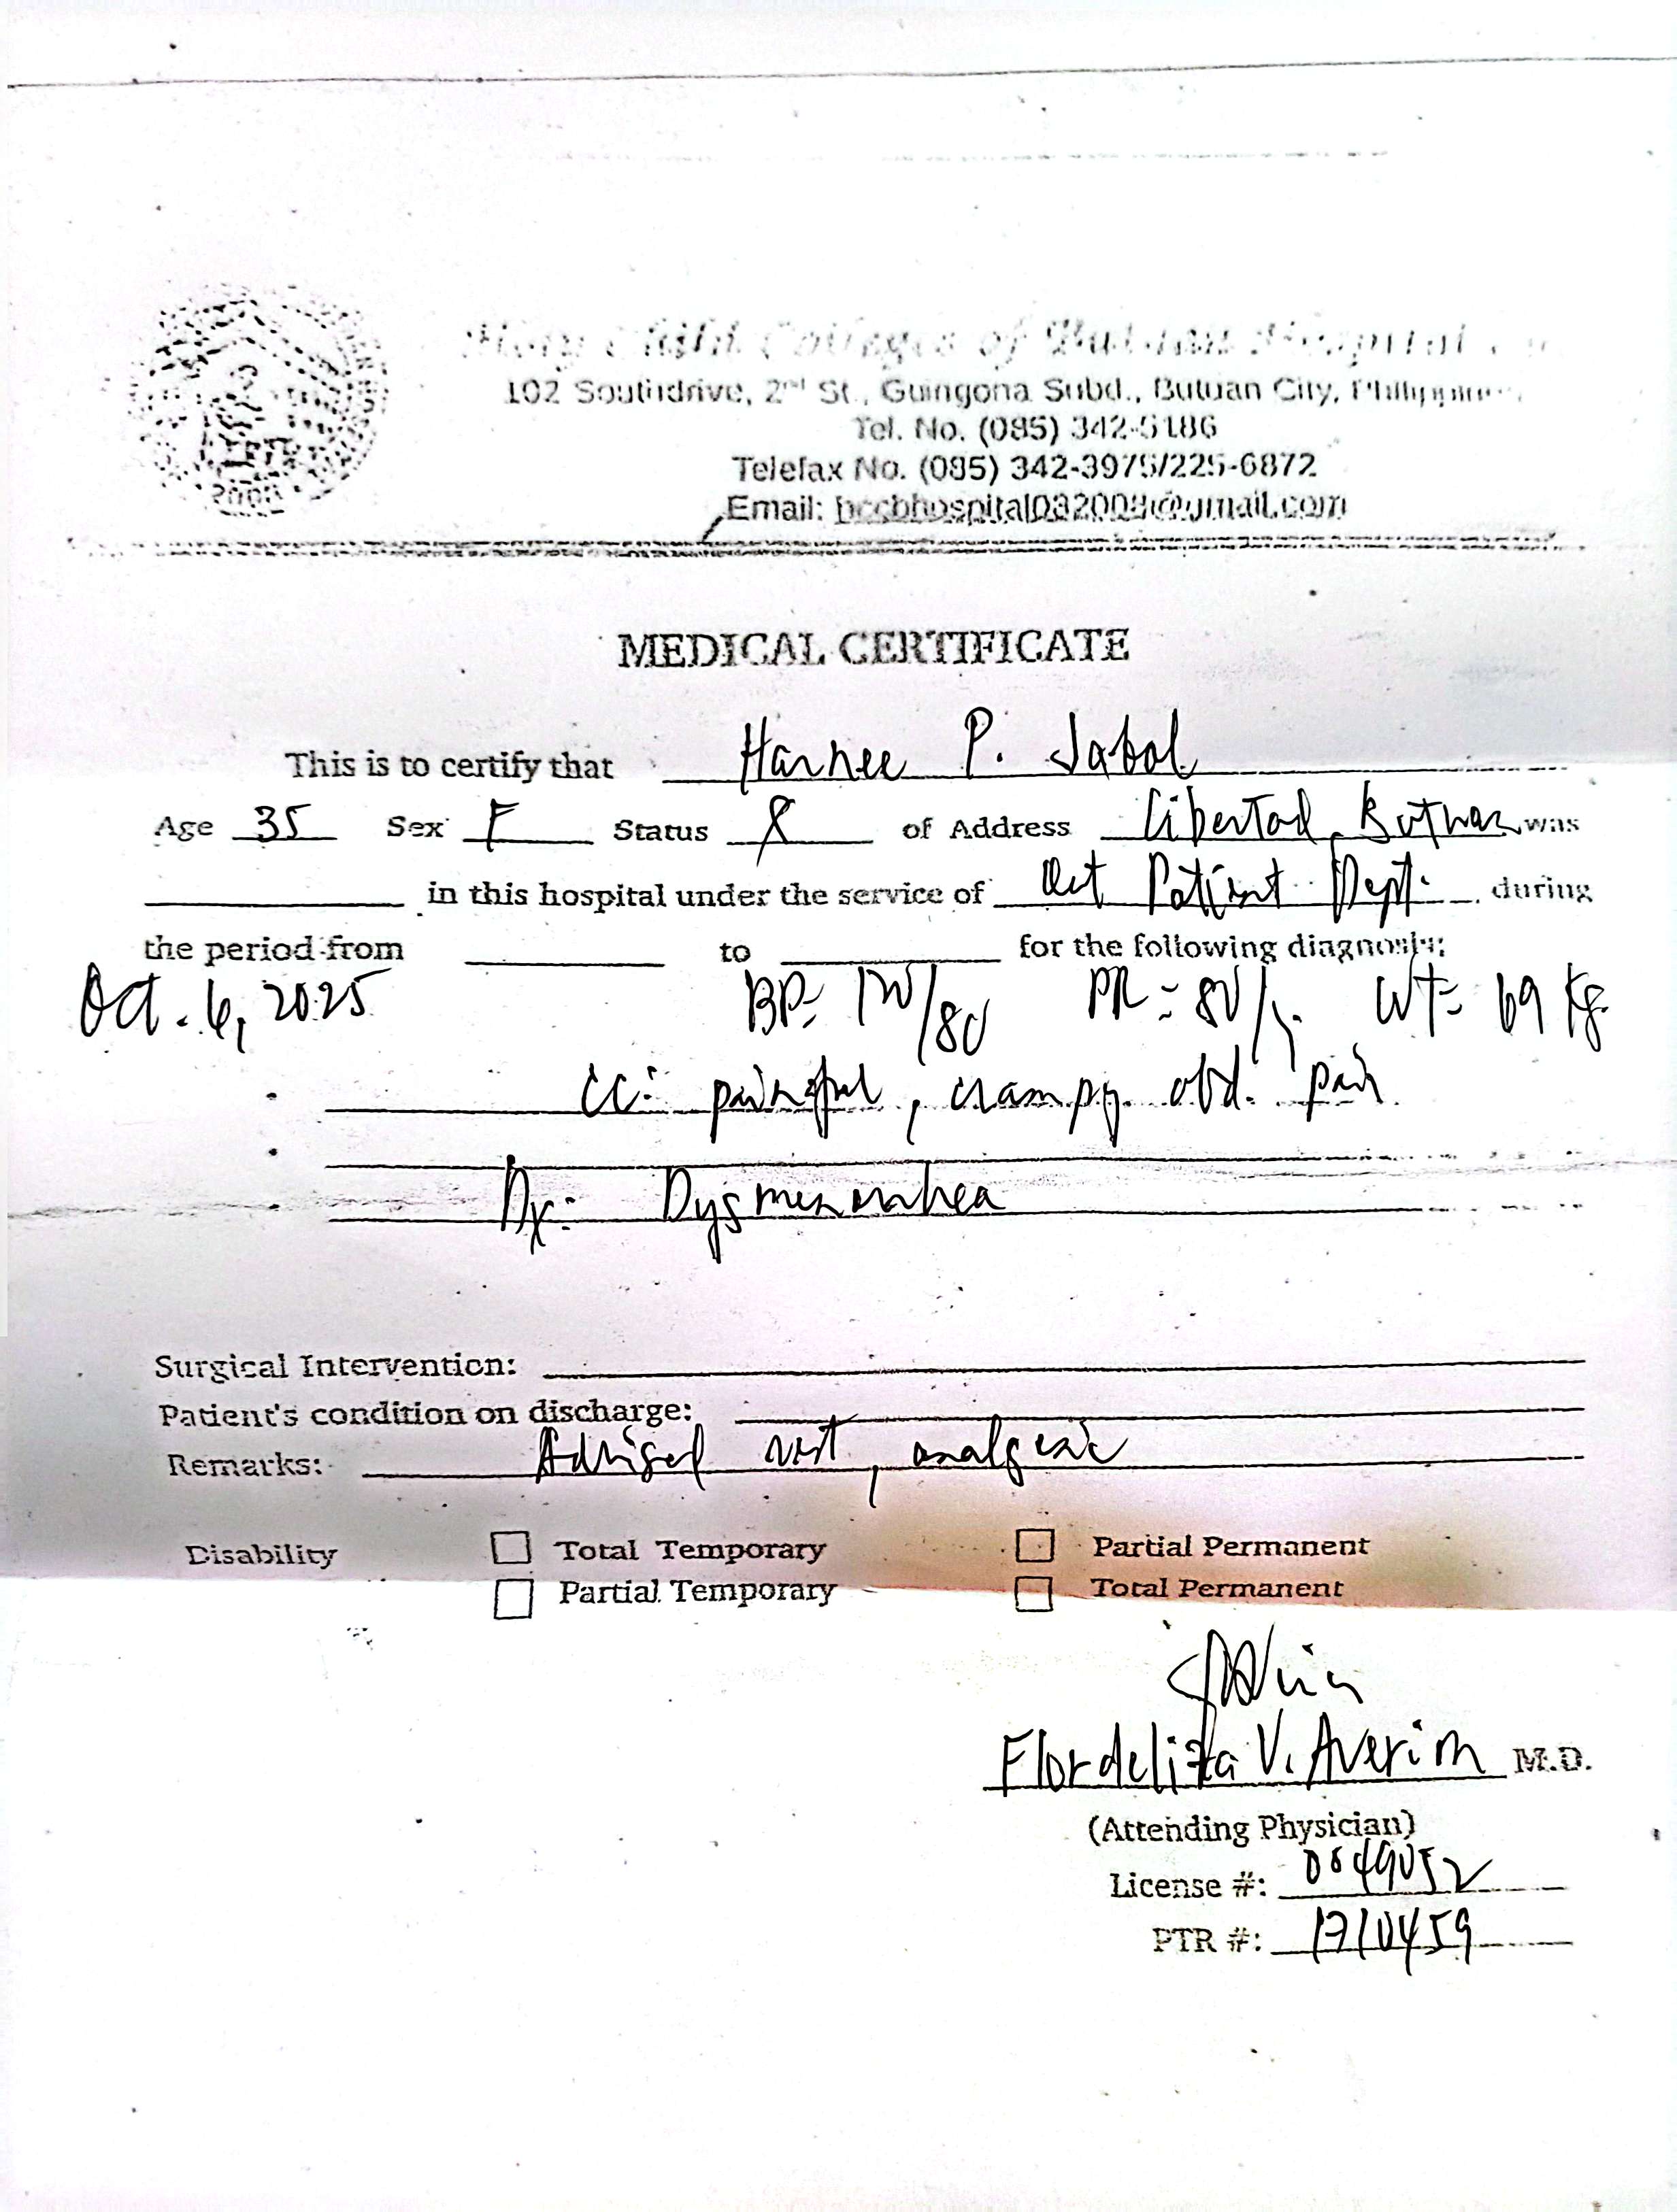 Holy Child Colleges of Butuan Hospital
102 Southdrive, 2nd St., Guingona Subd., Butuan City, Philippines
Tel. No. (085) 342-5186
Telefax No. (085) 342-3975/225-6872
Email: hccbhospital032008@gmail.com
MEDICAL CERTIFICATE
This is to certify that Harnee P. Jabol
Age 35 Sex F Status of Address Libertad, Butuan was
in this hospital under the service of Out Patient Dept. during
the period from to for the following diagnosis:
Oct. 6, 2025 BP= 120/80 PR = 80/ WT= 69 kg
CC: painful, crampy abd. pain
Dx: Dysmenorrhea
Surgical Intervention:
Patient's condition on discharge:
Remarks: Advised rest, analgesic
Disability Total Temporary Partial Permanent
Partial Temporary Total Permanent
Flordeliza V. Averion M.D.
(Attending Physician)
License #: 0049052
PTR #: 1710459